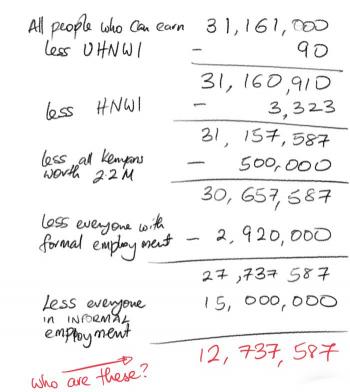 All people who can earn 31,161,000
less UHNWI - 90
31,160,910
less HNWI - 3,323
31,157,587
less all Kenyans
worth 2.2M - 500,000
30,657,587
Less everyone with
formal employment - 2,920,000
27,737,587
Less everyone
in INFORMAL
employment 15,000,000
12,737,587
who are these?